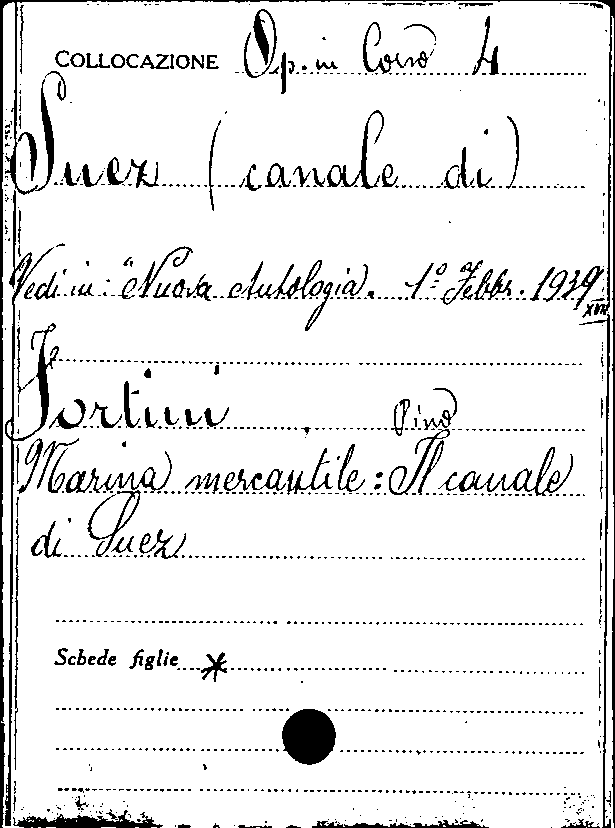 COLLOCAZIONE Op. in Corso 4
Suez (canale di)
Vedi in: "Nuova Antologia. 1º Febbr. 1939
XVII
Fortini, Pino
Marina mercantile: Il canale
di Suez
Schede figlie *